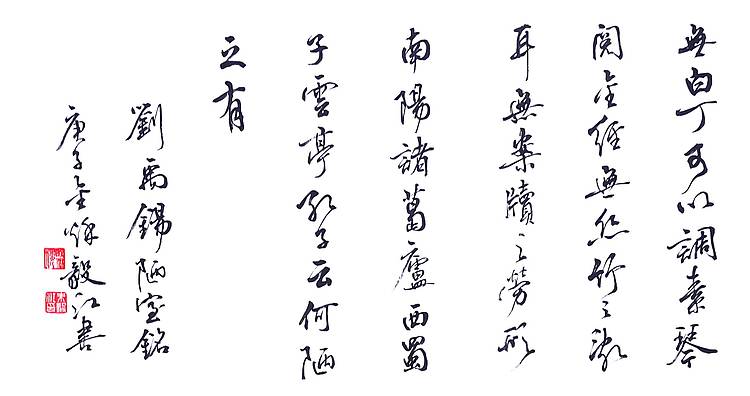 無白丁可以調素琴
閱金經無絲竹之亂
耳無案牘之勞形
南陽諸葛廬西蜀
子雲亭孔子云何陋
之有
劉禹錫陋室銘
庚子金秋毅江書